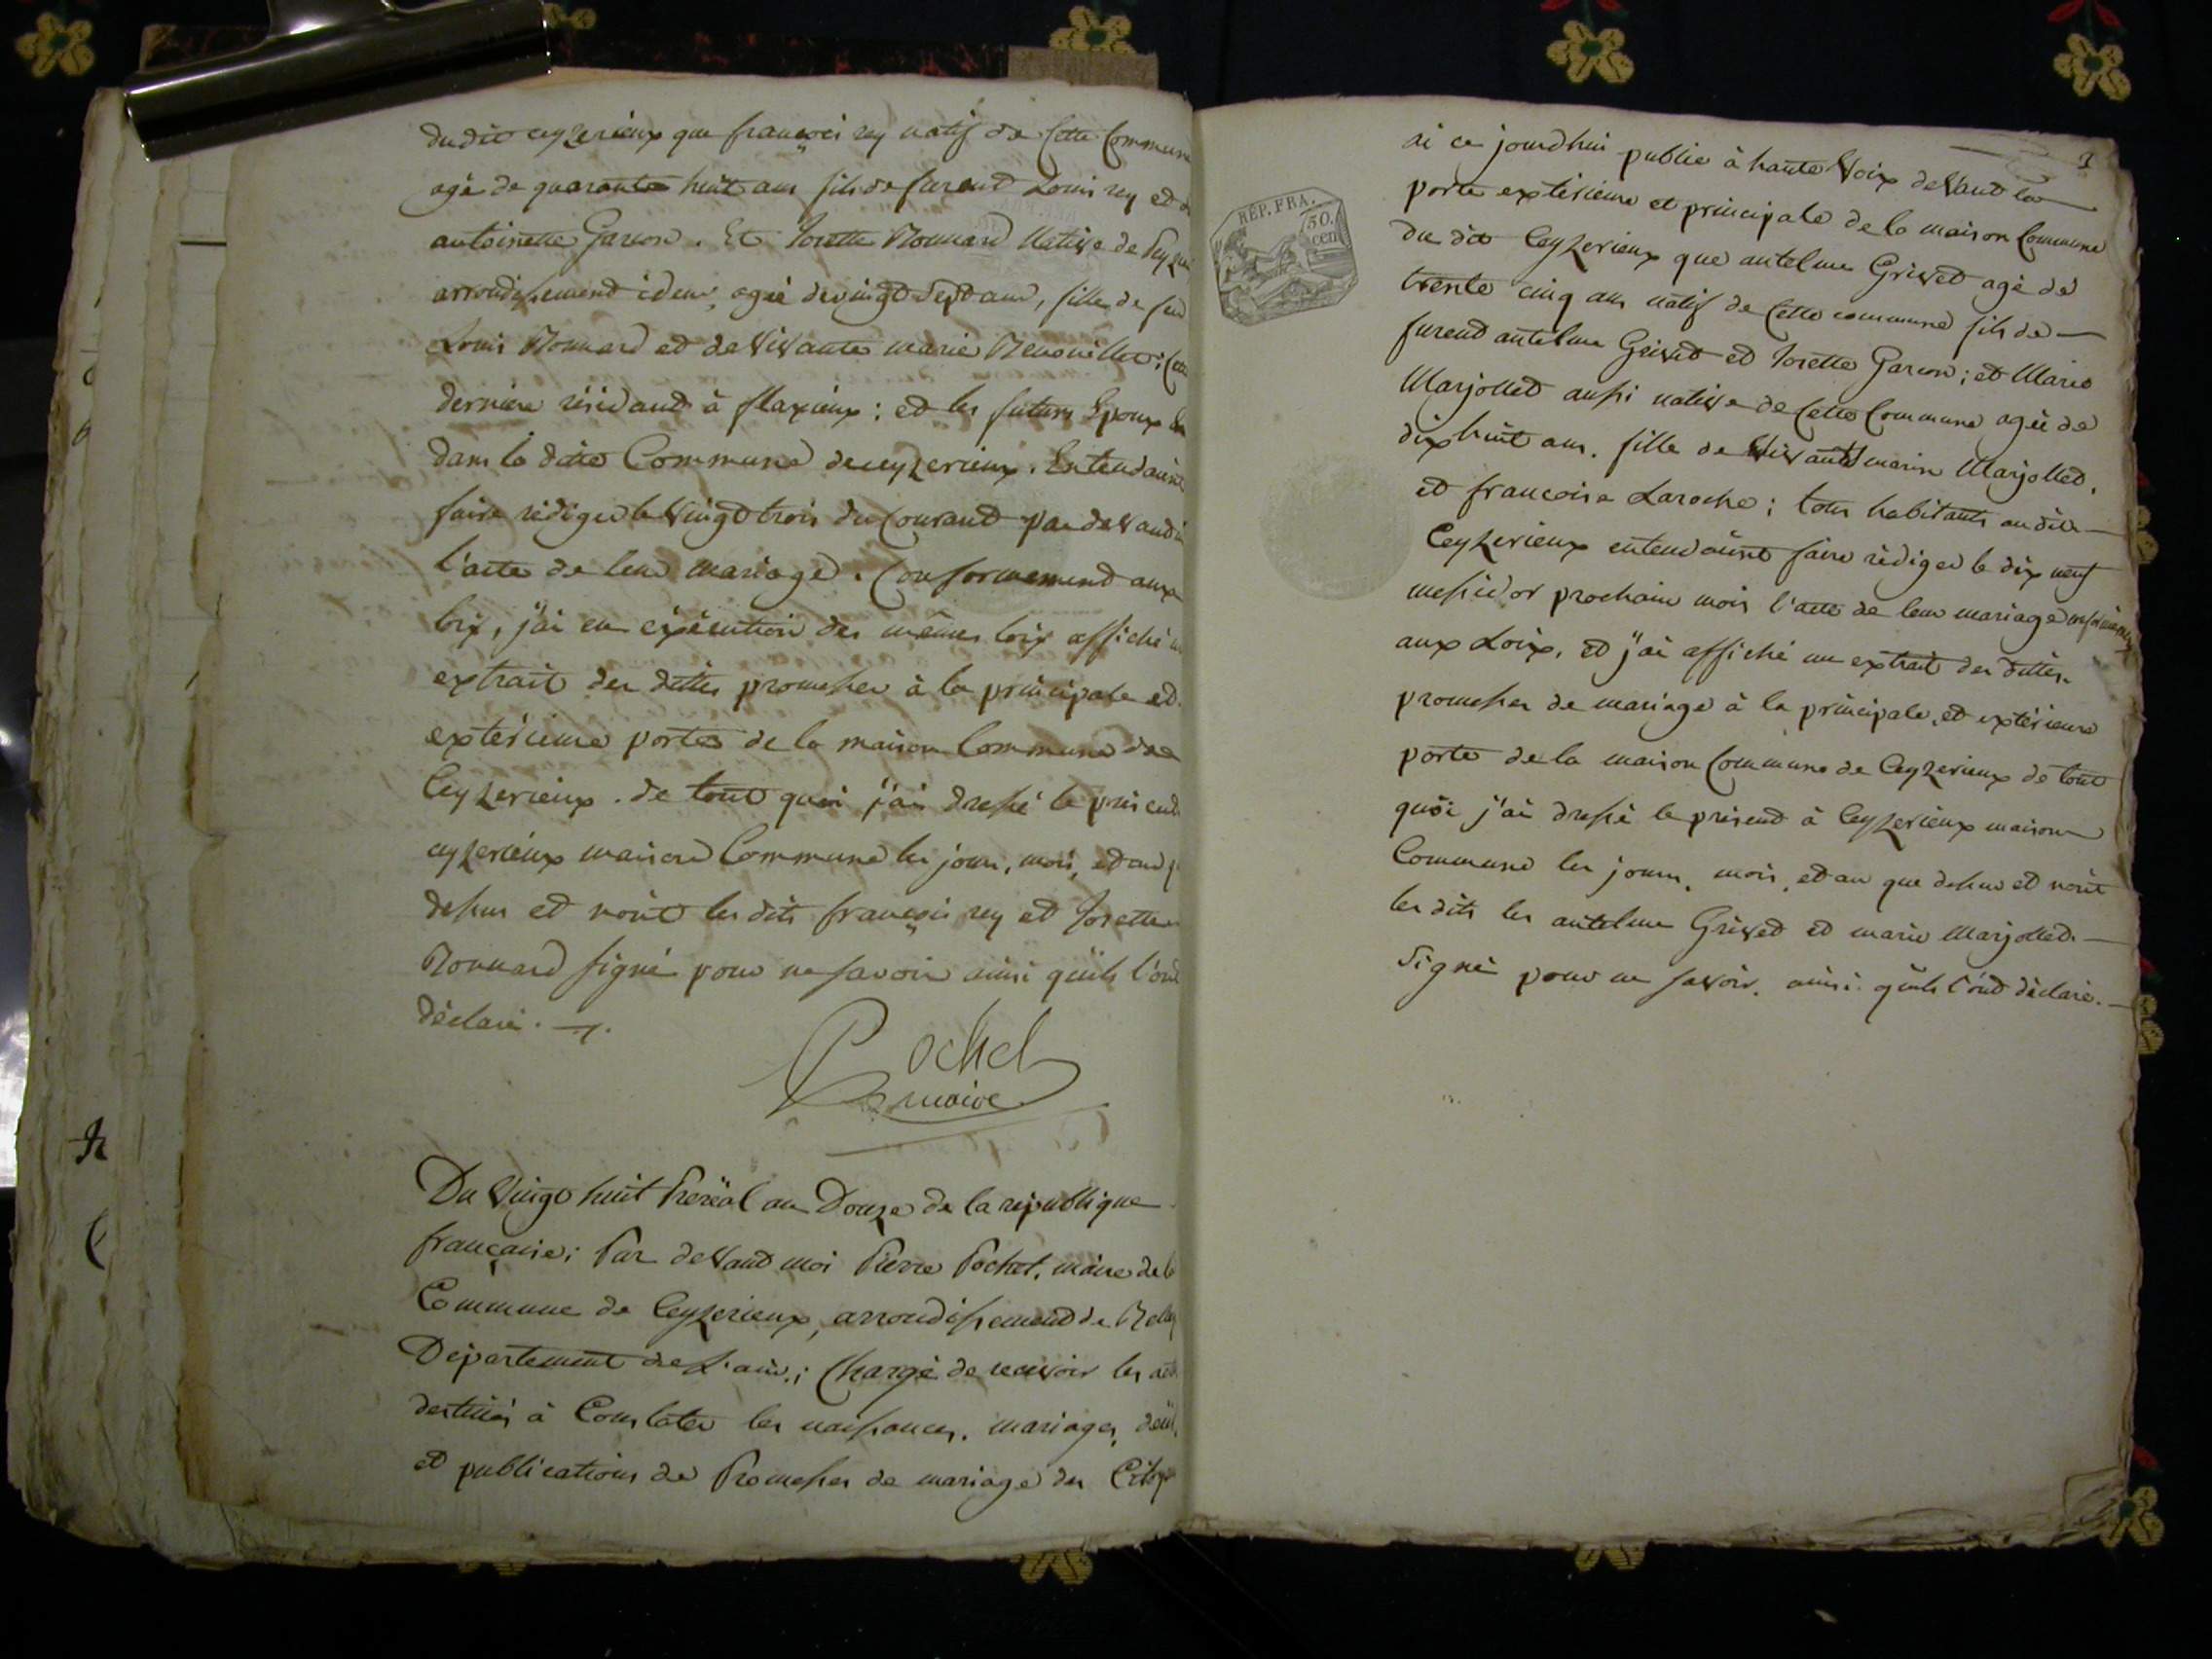 du dit ceyzerieux que françois rey natif de cette Commune
agé de quarante huit ans fils de furent Louis rey et
antoinette Garcon. Et Josette Monnard Native de
arrondissement idem, agée de vingt sept ans, fille de feu
Louis Monnard et de Vivante marie
dernière résidant à flaxieux; et les futurs Epoux
dans la ditte Commune de ceyzerieux. Entendaint
faire rédiger le Vingt trois du Courant par devant
l'acte de leur mariage. Conformement aux
loix, j'ai en exécution des mêmes loix affiché
extrait des dittes promesses à la principale et
extérieure portes de la maison Commune de
Ceyzerieux. de tout quoi j'ai dressé le présent
ceyzerieux maison Commune les jour, mois, et an
dessus et n'oint les dits françois rey et Josette
Monnard signé pour ne savoir ainsi qu'ils l'ont
déclaré.
Pochet
maire
Du Vingt huit Preréal an Douze de la république
française; Par devant moi Pierre Pochet, maire de la
Commune de Ceyzerieux, arrondissement de
Département de L'ain; Chargé de recevoir les
destinés à Constater les naissances, mariages,
et publications de Promesses de mariage des
3
ai ce jourdhui publié à haute Voix devant la
porte extérieure et principale de la maison Commune
du dit Ceyzerieux que antelme Grivet agé de
trente cinq ans natif de cette commune fils de
furent antelme Grivet et Josette Garcon; et Marie
Marjollet aussi native de cette Commune agée de
dix huit ans. fille de Vivants marin Marjollet,
et francoise Laroche; tous habitants au dit
Ceyzerieux entendaint faire rédiger le dix neuf
messidor prochain mois l'acte de leur mariage
aux Loix, et j'ai affiché un extrait des dittes
promesses de mariage à la principale, et extérieure
porte de la maison Commune de Ceyzerieux de tout
quoi j'ai dressé le présent à Ceyzerieux maison
Commune les jours, mois, et an que dessus et n'oint
les dits les antelme Grivet et marie Marjollet
Signé pour ne savoir. ainsi qu'ils l'ont déclaré.
RÉP. FRA.
50.
cen